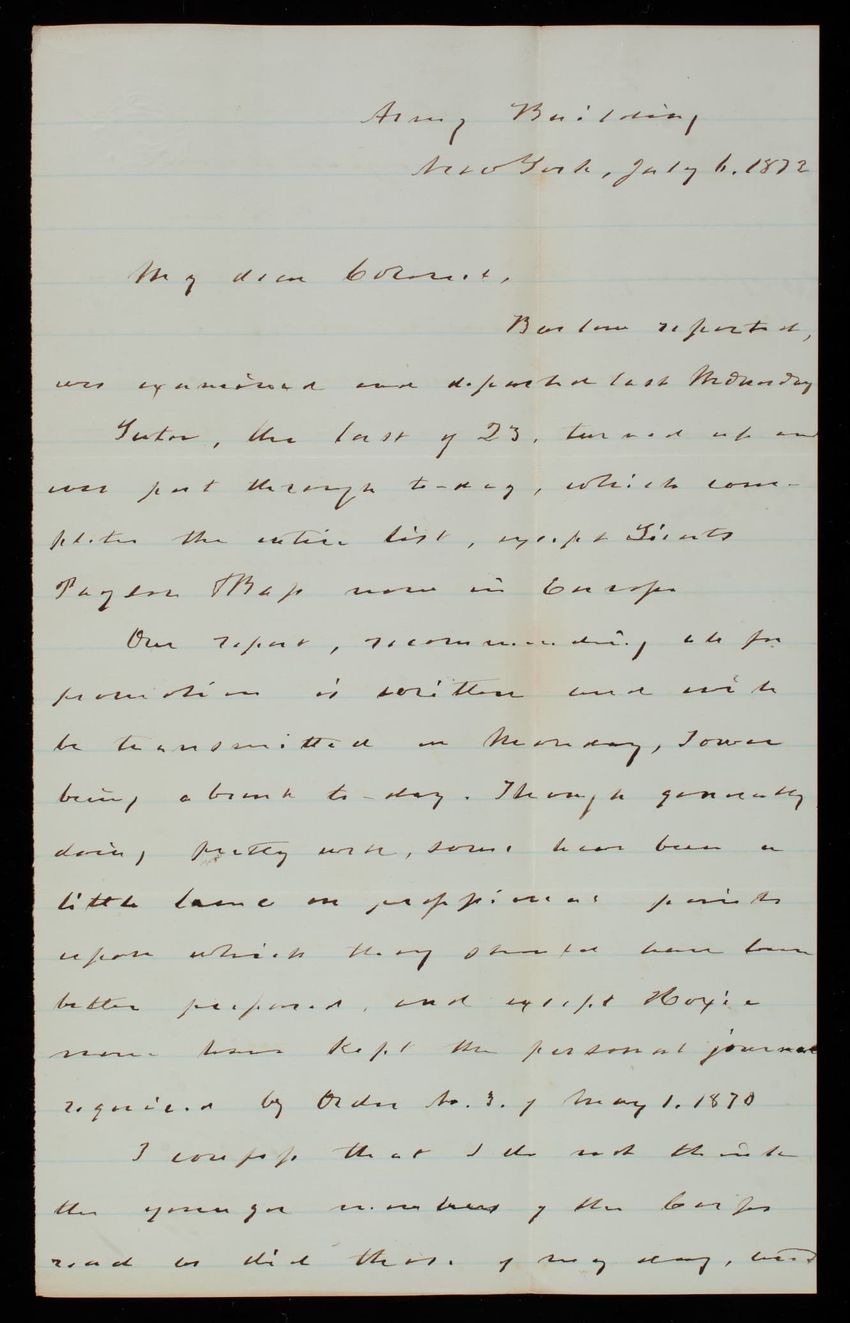 Army Building
New York, July 6. 1872
My dear Colonel,
Barlow reported,
was examined and departed last Wednesday
Suter, the last of 23, turned up and
was put through to-day, which com-
pletes the entire list, except Lieuts
Payson & Bass now in Europe
Our report, recommending all for
promotion is written and will
be transmitted on Monday, Tower
being absent to-day. Though generally
doing pretty well, some have been a
little lame on professional points
upon which they should have been
better prepared, and except Hoxie
none have kept the personal journal
required by Order No. 3. of May 1. 1870
I confess that I do not think
the younger members of the Corps
read as did those of my day, and